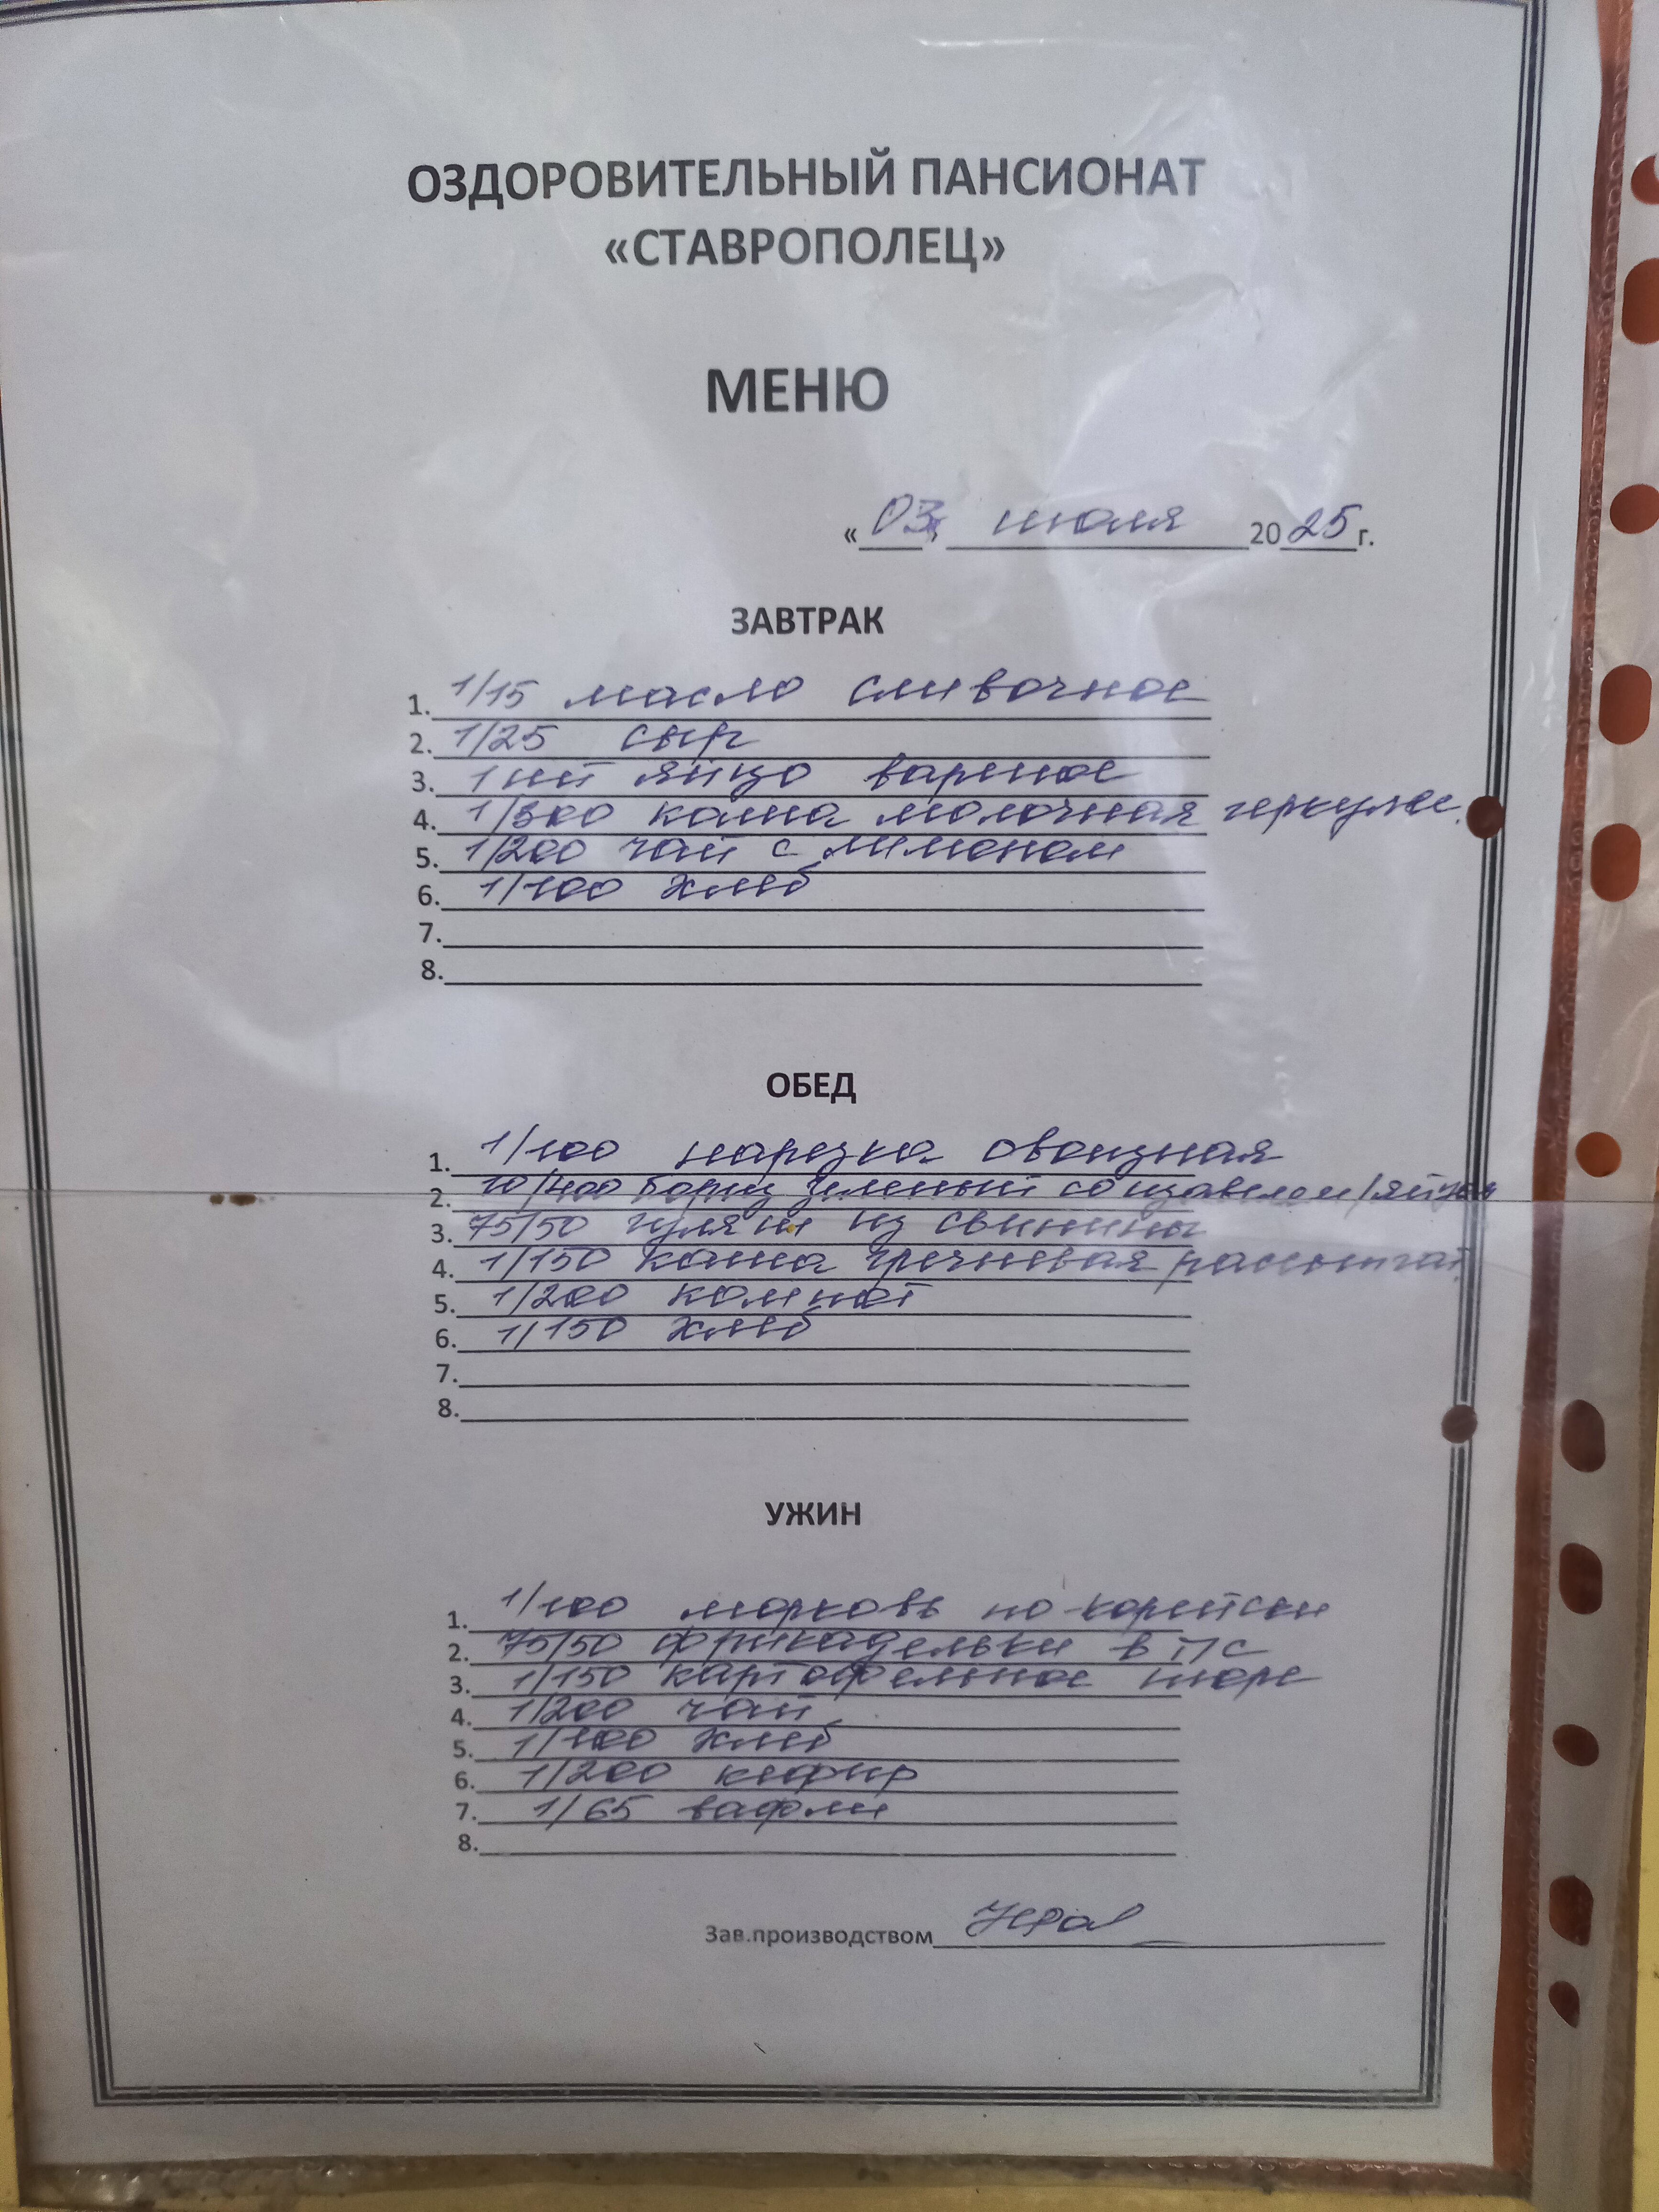 ОЗДОРОВИТЕЛЬНЫЙ ПАНСИОНАТ
«СТАВРОПОЛЕЦ»
МЕНЮ
«03» июля 2025 г.
ЗАВТРАК
1. 1/15 масло сливочное
2. 1/25 сыр
3. 1 шт яйцо вареное
4. 1/300 каша молочная геркулес.
5. 1/200 чай с лимоном
6. 1/100 хлеб
7.
8.
ОБЕД
1. 1/100 нарезка овощная
2. 10/400 борщ зеленый со щавелем/яйцом
3. 75/50 гуляш из свинины
4. 1/150 каша гречневая рассыпчат.
5. 1/200 компот
6. 1/150 хлеб
7.
8.
УЖИН
1. 1/100 морковь по-корейски
2. 75/50 фрикадельки в ПС
3. 1/150 картофельное пюре
4. 1/200 чай
5. 1/100 хлеб
6. 1/200 кефир
7. 1/65 вафли
8.
Зав.производством